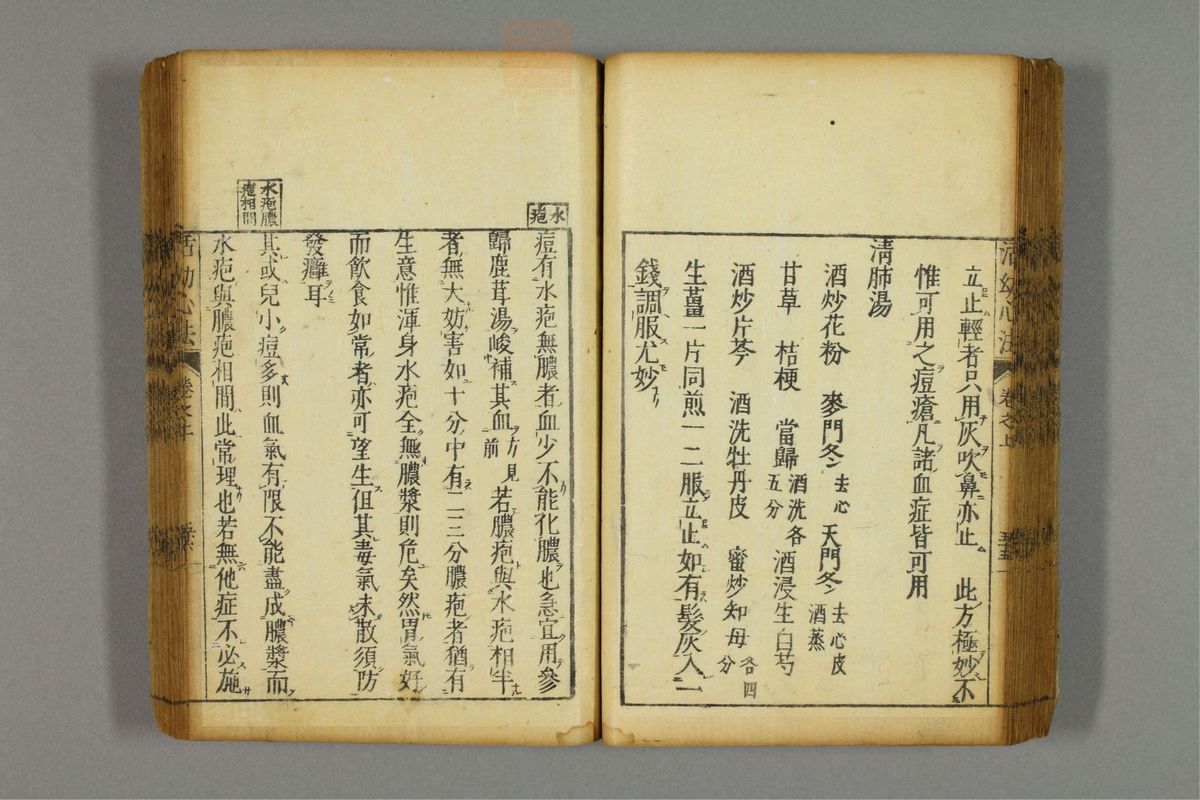 活幼心法 卷之上 五五
立止輕者只用灰吹鼻亦止 此方極妙不
惟可用之痘瘡凡諸血症皆可用
清肺湯
酒炒花粉 麥門冬去心 天門冬去心皮酒蒸
甘草 桔梗 當歸酒洗各五分 酒浸生白芍
酒炒片芩 酒洗牡丹皮 蜜炒知母各四分
生薑一片同煎一二服立止如有髮灰入二
錢調服尤妙
水疱
痘有水疱無膿者血少不能化膿也急宜用參
歸鹿茸湯峻補其血方見前 若膿疱與水疱相半
者無大妨害如十分中有二三分膿疱者猶有
生意惟渾身水疱全無膿漿則危矣然胃氣好
而飲食如常者亦可望生但其毒氣未散須防
發癰耳
水疱膿疱相間
其或兒小痘多則血氣有限不能盡成膿漿而
水疱與膿疱相間此常理也若無他症不必施
活幼心法 卷之上